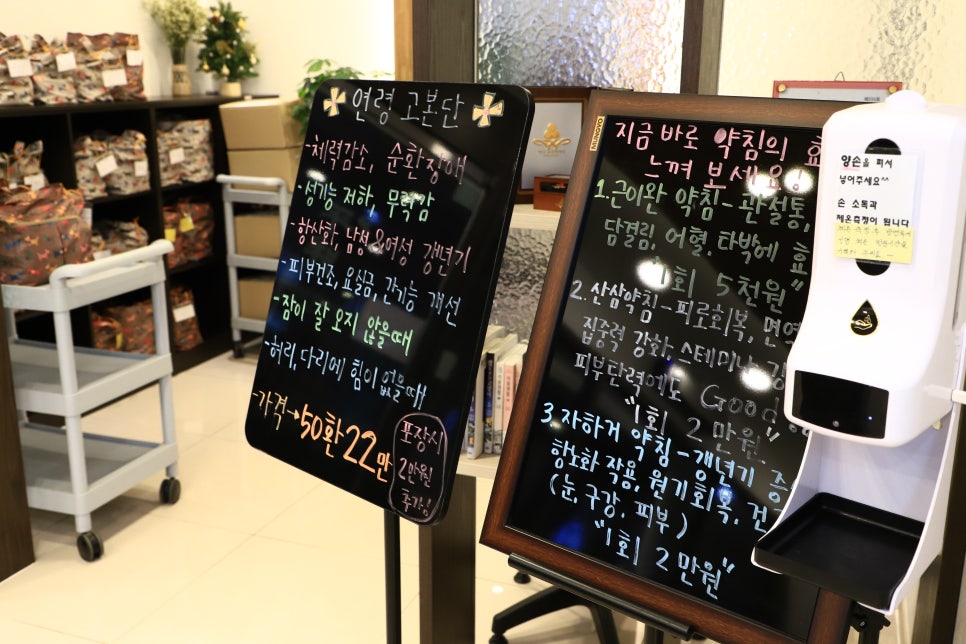 연령 고본단
-체력감소, 순환장애
-성기능 저하, 무력감
-항산화, 남성&여성 갱년기
-피부건조, 요실금, 간기능 개선
-잠이 잘 오지 않을때
-허리, 다리에 힘이 없을때
-가격→50환22만
포장시
2만원
추가!
지금 바로 약침의 효
느껴 보세요!
1. 근이완 약침-관절통,
담결림, 어혈, 타박에 효
"1회 5천원"
2. 산삼약침-피로회복, 면역
집중력 강화, 스테미너
피부탄력에도 Good
"1회 2만원".
3. 자하거 약침-갱년기 증
항노화 작용, 원기회복, 건
(눈, 구강, 피부)
"1회 2만원"
양손을 펴서
넣어주세요^^
손 소독과
체온측정이 됩니다